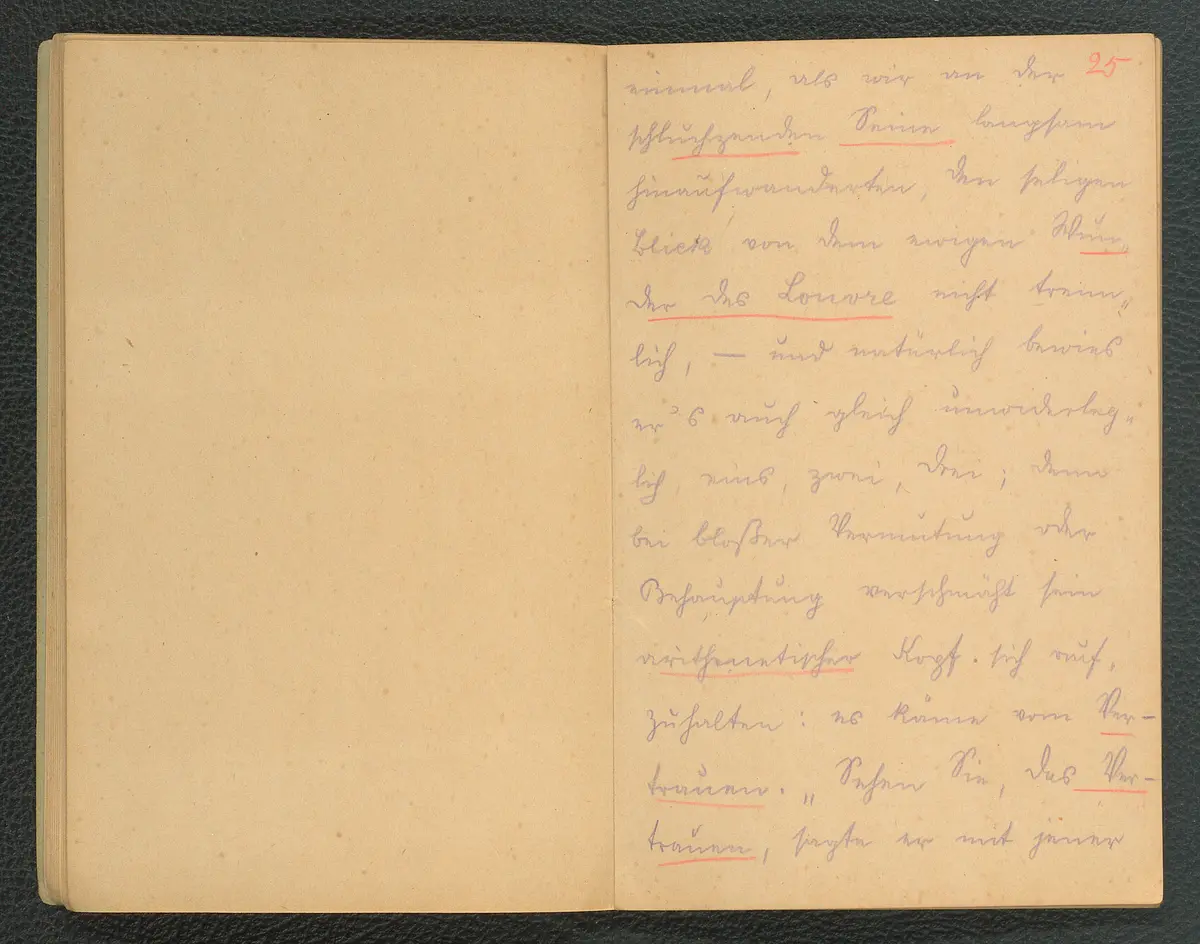 25
einmal, als wir an der
schluchzenden Seine langsam
hinaufwanderten, den seligen
Blick von dem ewigen Wun„
der des Louvre nicht trenn„
lich, — und natürlich bewies
er's auch gleich unwiderleg„
lich, eins, zwei, drei; denn
bei bloßer Vermutung oder
Behauptung verschmäht sein
arithmetischer Kopf sich auf„
zuhalten: es käme vom Ver-
trauen. „Sehen Sie, das Ver-
trauen, sagte er mit jener